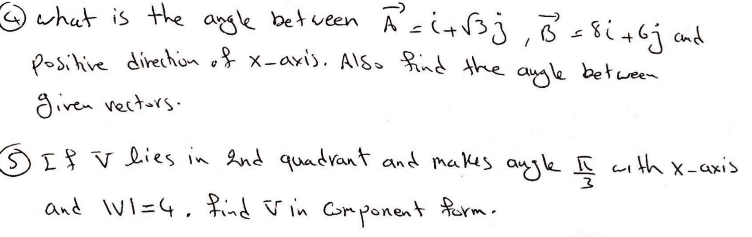 ④ what is the angle between A⃗ = i+√3j , B⃗ = 8i+6j and
positive direction of x-axis. Also find the angle between
given vectors.
⑤ If v̄ lies in 2nd quadrant and makes angle π/3 with x-axis
and |V|=4. find v̄ in component form.